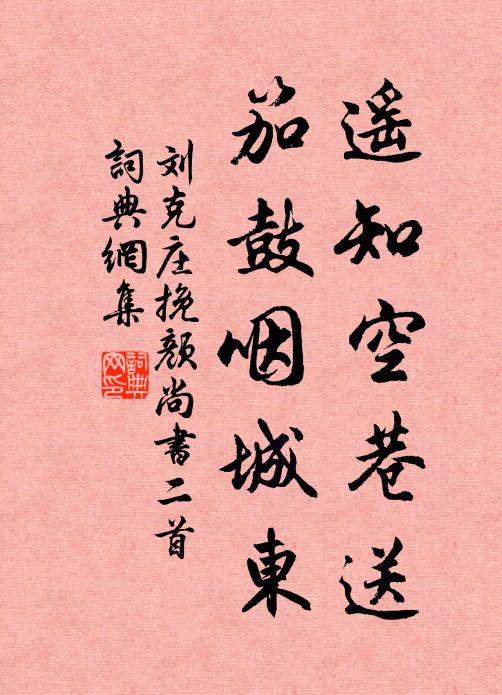 遥知空巷送
笳鼓咽城東
刘克庄挽颜尚書二首
詞典網集
詞典
网印